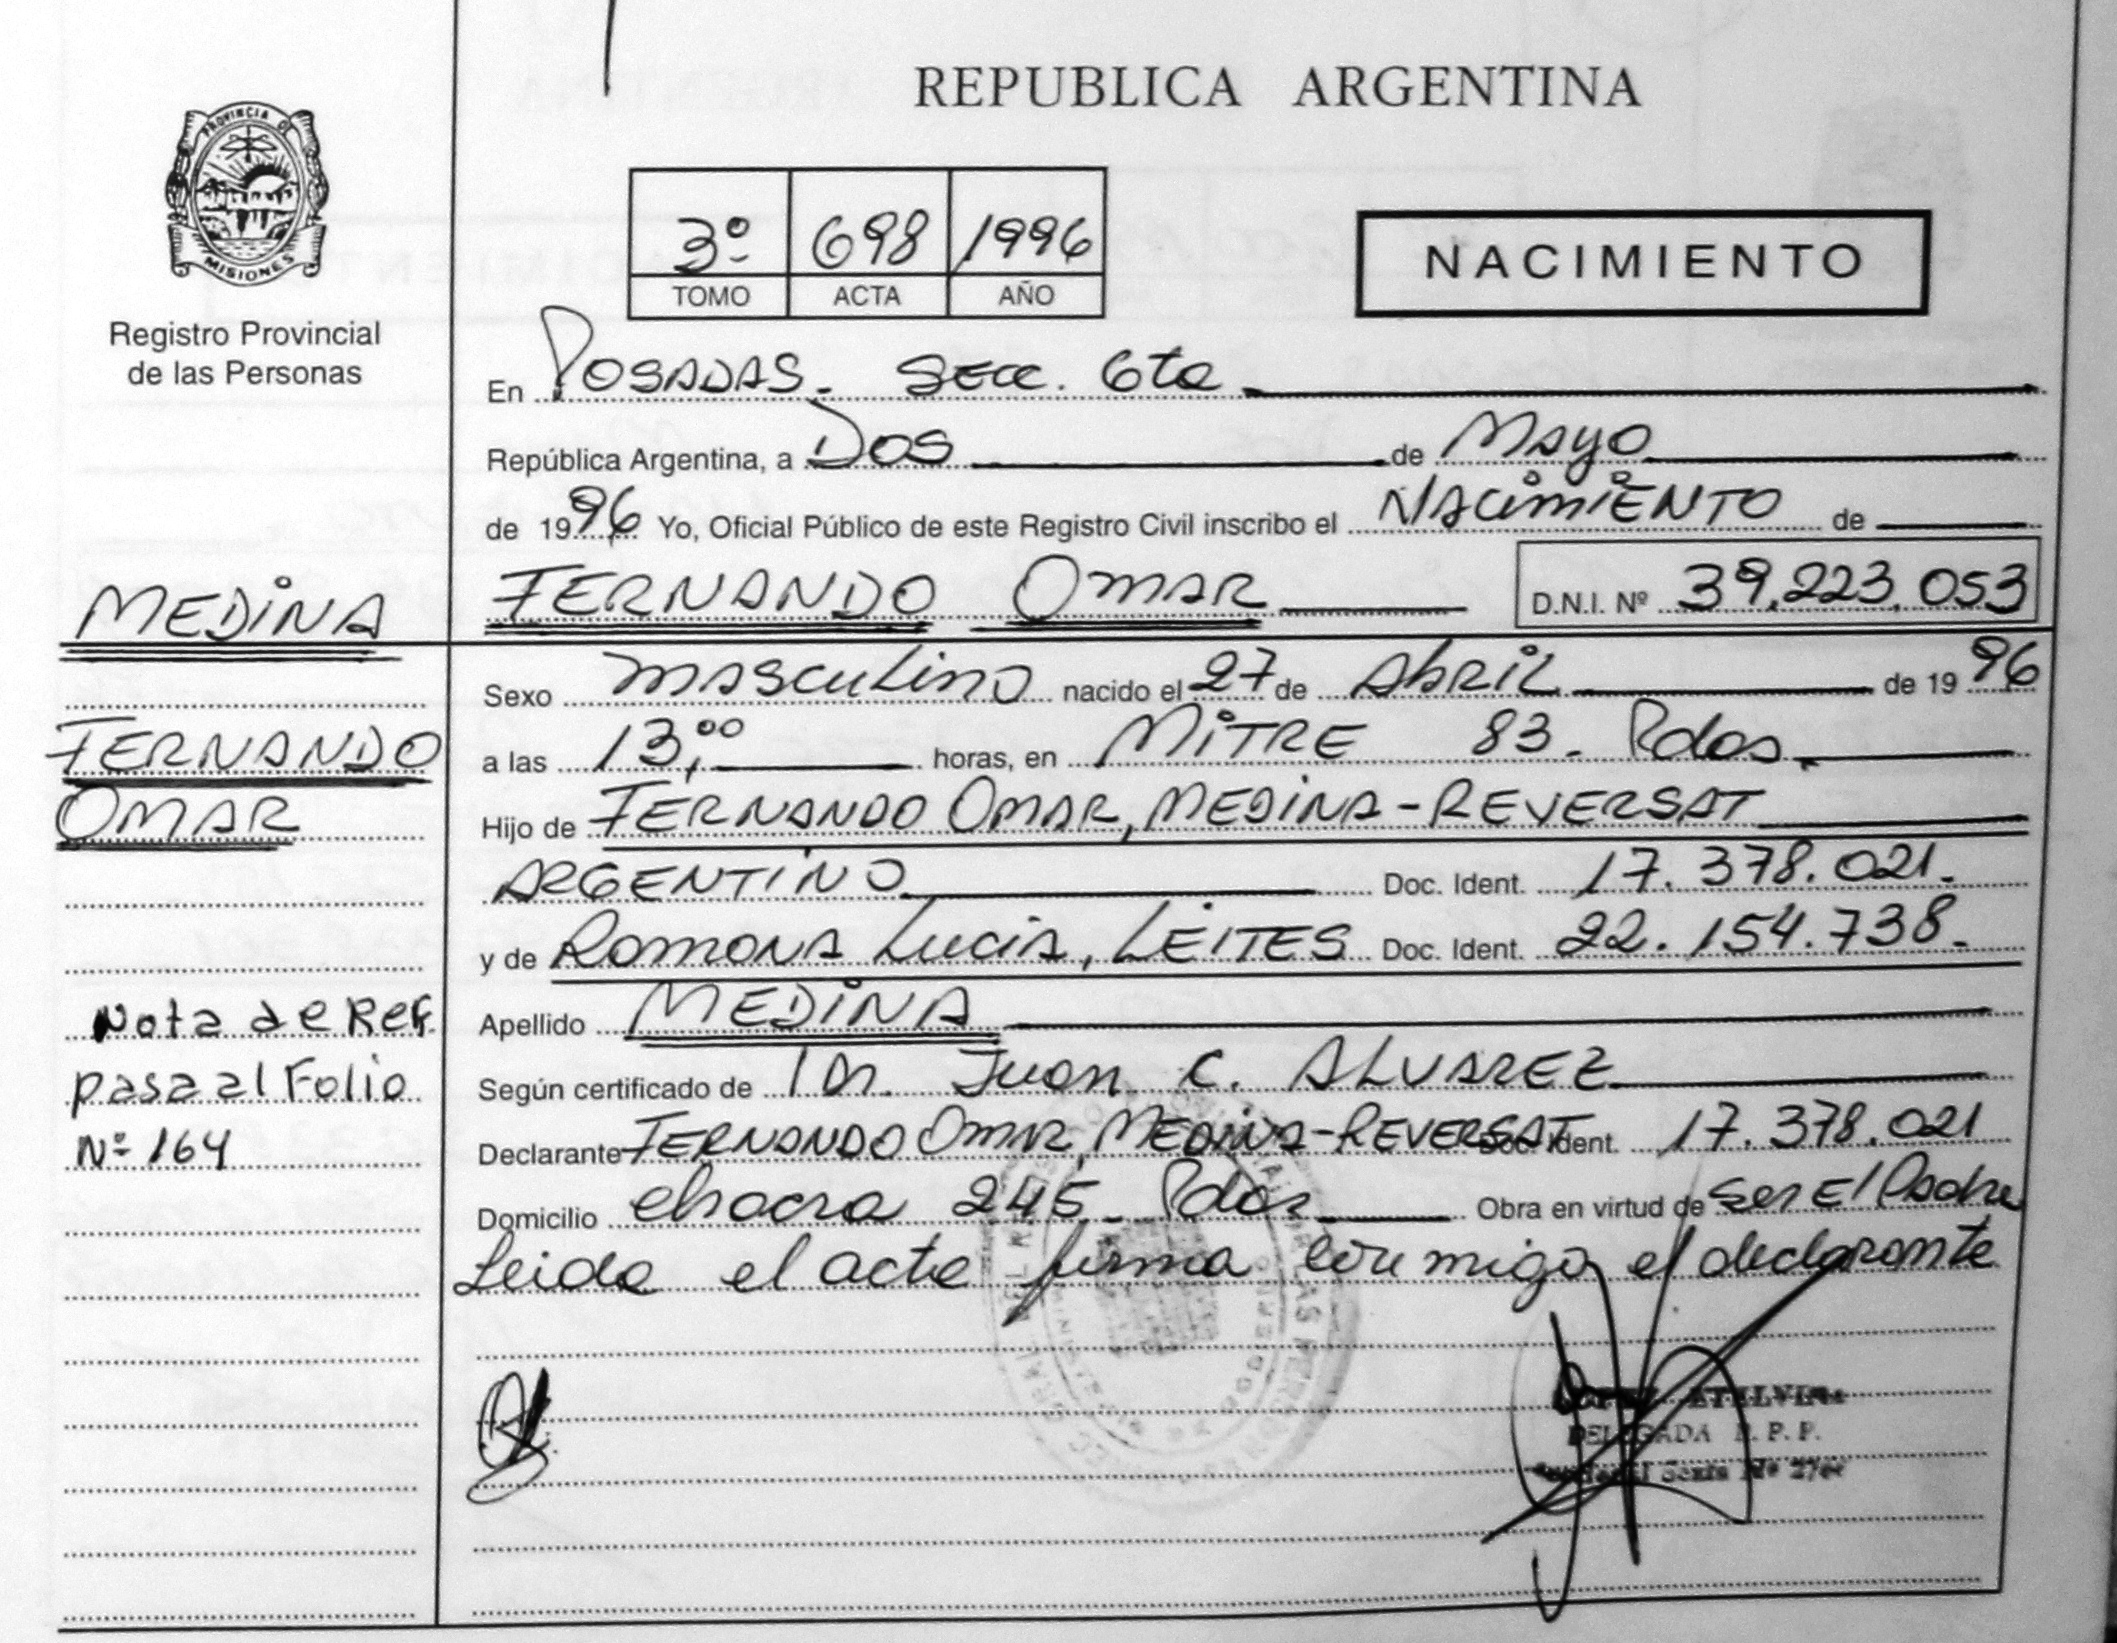 REPUBLICA ARGENTINA
PROVINCIA DE
MISIONES
Registro Provincial
de las Personas
3º 698 1996
TOMO ACTA AÑO
NACIMIENTO
En POSADAS. SECC. 6ta
República Argentina, a Dos de Mayo
de 1996 Yo, Oficial Público de este Registro Civil inscribo el NACIMIENTO de
FERNANDO OMAR D.N.I. Nº 39.223.053
MEDINA
FERNANDO
OMAR
Nota de Ref.
pasa al Folio
Nº 164
Sexo masculino nacido el 27 de Abril de 1996
a las 13,00 horas, en MITRE 83. Pdas.
Hijo de FERNANDO OMAR, MEDINA-REVERSAT
ARGENTINO Doc. Ident. 17.378.021.
y de Ramona Lucia, LEITES Doc. Ident. 22.154.738.
Apellido MEDINA
Según certificado de Dr. Juan C. ALVAREZ
Declarante FERNANDO OMAR, MEDINA-REVERSAT Doc. Ident. 17.378.021
Domicilio chacra 245 Pdas Obra en virtud de ser El Padre
Leida el acta firma conmigo el declarante
ETELVINA
DELEGADA R. P. P.